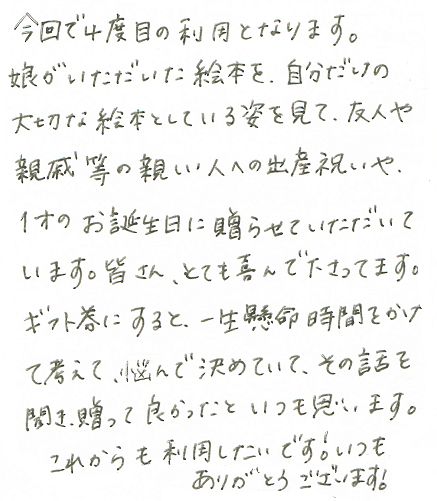 今回で4度目の利用となります。
娘がいただいた絵本を、自分だけの
大切な絵本としている姿を見て、友人や
親戚等の親しい人への出産祝いや、
1才のお誕生日に贈らせていただいて
います。皆さん、とても喜んで下さってます。
ギフト券にすると、一生懸命時間をかけ
て考えて、悩んで決めていて、その話を
聞き、贈って良かったといつも思います。
これからも利用したいです！いつも
ありがとうございます！